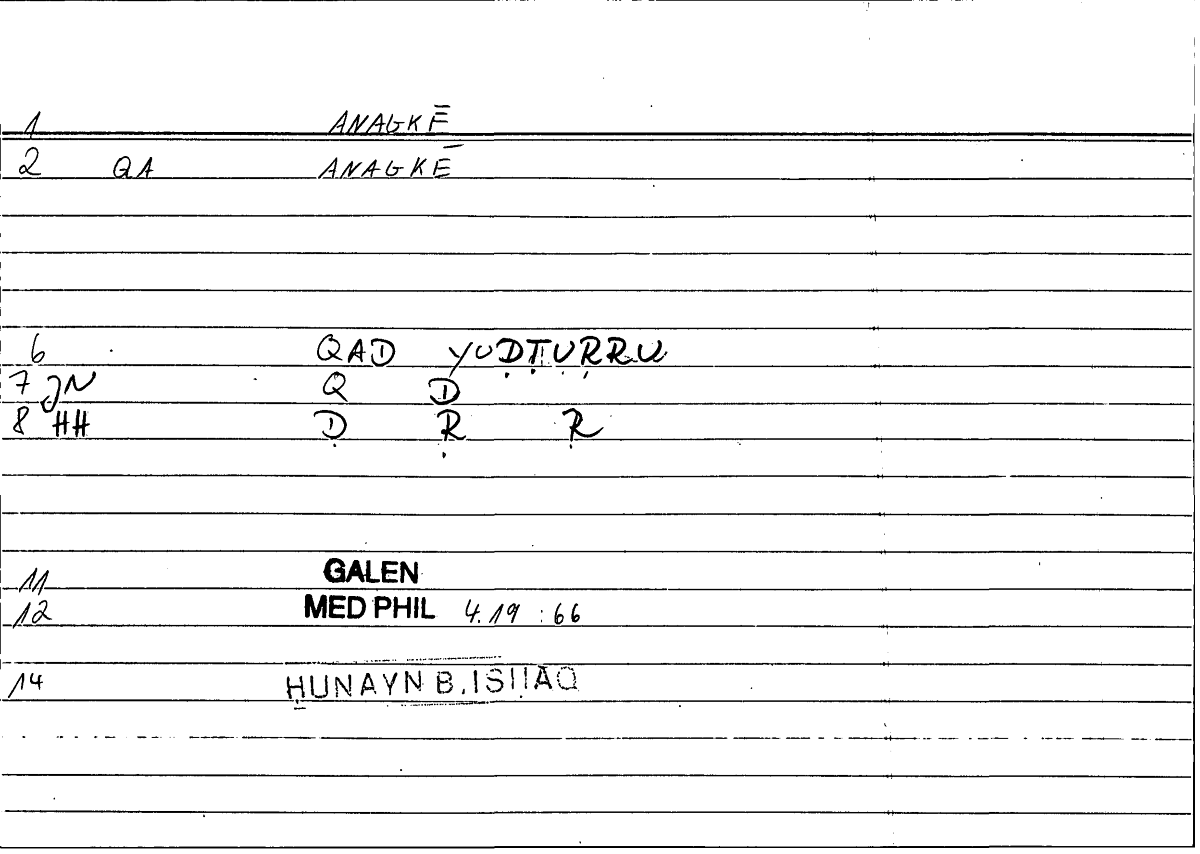 1 ANAGKĒ
2 QA ANAGKĒ
6 QAD YUḌṬURRU
7 JN Q D
8 HH Ḍ Ṛ Ṛ
11 GALEN
12 MED PHIL 4.19 :66
14 ḤUNAYN B. ISḤAQ